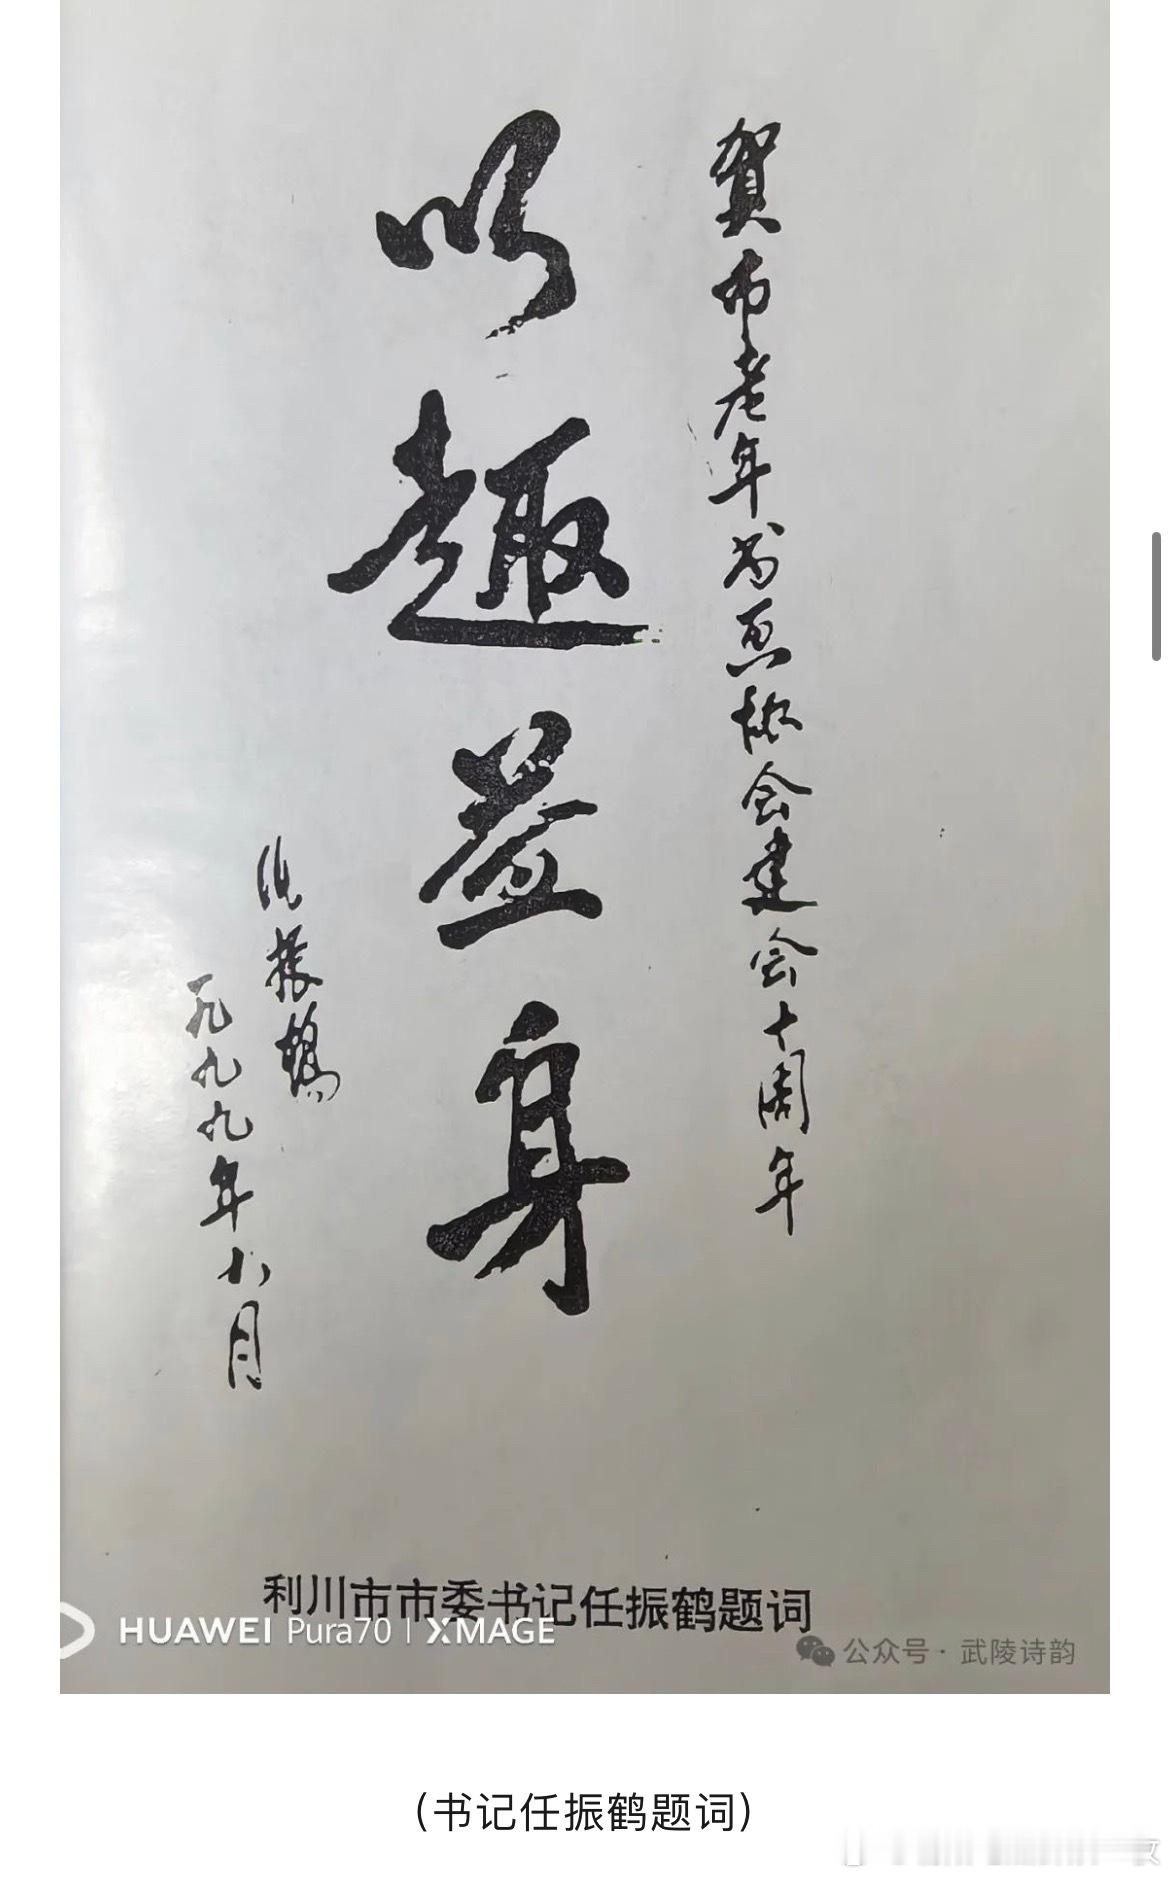 贺市老年书画协会建会十周年
以趣益身
任振鹤
一九九九年八月
利川市市委书记任振鹤题词
HUAWEI Pura70 | XMAGE
公众号·武陵诗韵
（书记任振鹤题词）